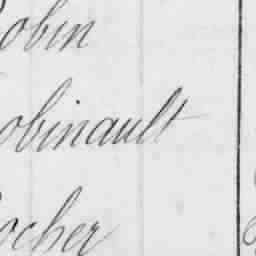 Robin
Robinault
Rocher